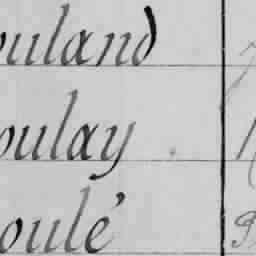 ouland
oulay
oulé